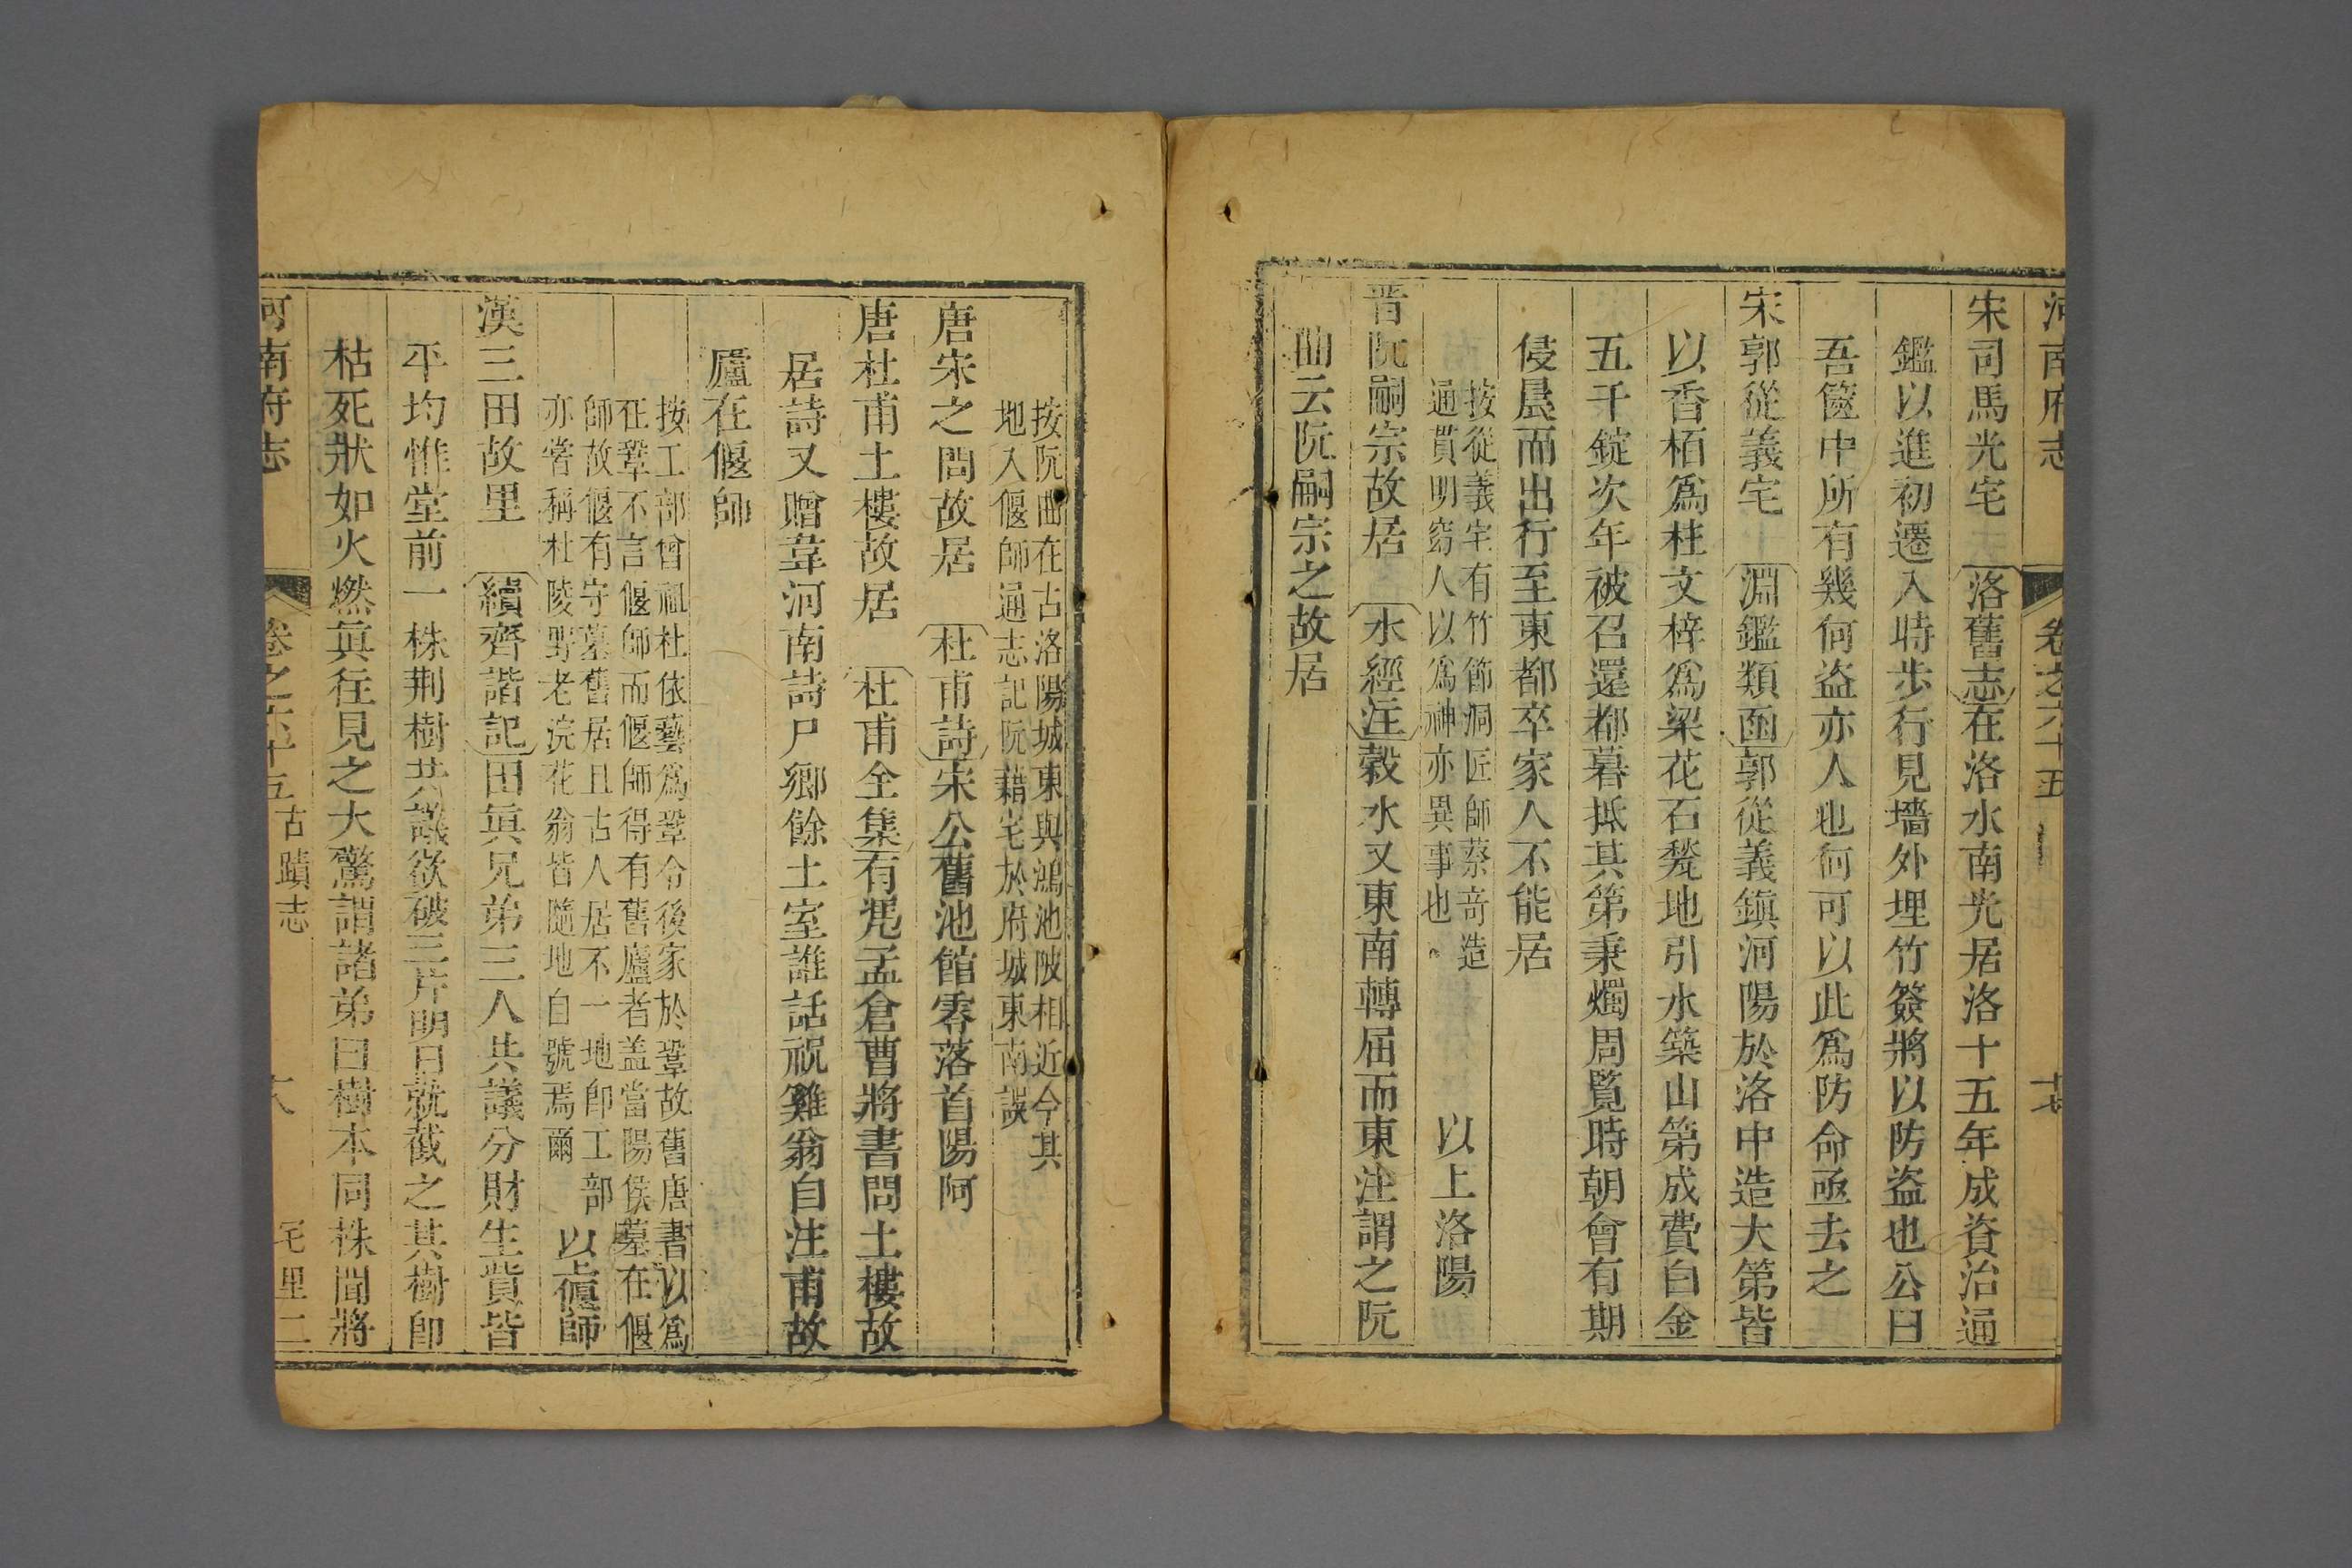 河南府志 卷之六十五 十七
宋司馬光宅 洛舊志在洛水南光居洛十五年成資治通
鑑以進初遷入時步行見墻外埋竹簽將以防盜也公曰
吾篋中所有幾何盜亦人也何可以此爲防命亟去之
宋郭從義宅 淵鑑類函郭從義鎭河陽於洛中造大第皆
以香栢爲柱文梓爲梁花石甃地引水築山第成費白金
五千錠次年被召還都暮抵其第秉燭周覧時朝會有期
侵晨而出行至東都卒家人不能居
按從義宅有竹節洞匠師蔡竒造
通貫明窈人以爲神亦異事也 以上洛陽
晋阮嗣宗故居 水經注穀水又東南轉屈而東注謂之阮
曲云阮嗣宗之故居
按阮曲在古洛陽城東與鴻池陂相近今其
地入偃師通志記阮藉宅於府城東南誤
唐宋之問故居 杜甫詩宋公舊池館零落首陽阿
唐杜甫土樓故居 杜甫全集有凭孟倉曹將書問土樓故
居詩又贈韋河南詩尸鄉餘土室誰話祝雞翁自注甫故
廬在偃師
按工部曾祖杜依藝爲鞏令後家於鞏故舊唐書以爲
在鞏不言偃師而偃師得有舊廬者盖當陽侯墓在偃
師故偃有守墓舊居且古人居不一地卽工部
亦嘗稱杜陵野老浣花翁皆隨地自號焉爾 以上偃師
漢三田故里 續齊諧記田眞兄弟三人共議分財生貲皆
平均惟堂前一株荆樹共議欲破三片明日就截之其樹卽
枯死狀如火燃眞往見之大驚謂諸弟曰樹本同株聞將
河南府志 卷之六十五 古蹟志 十八 宅里二